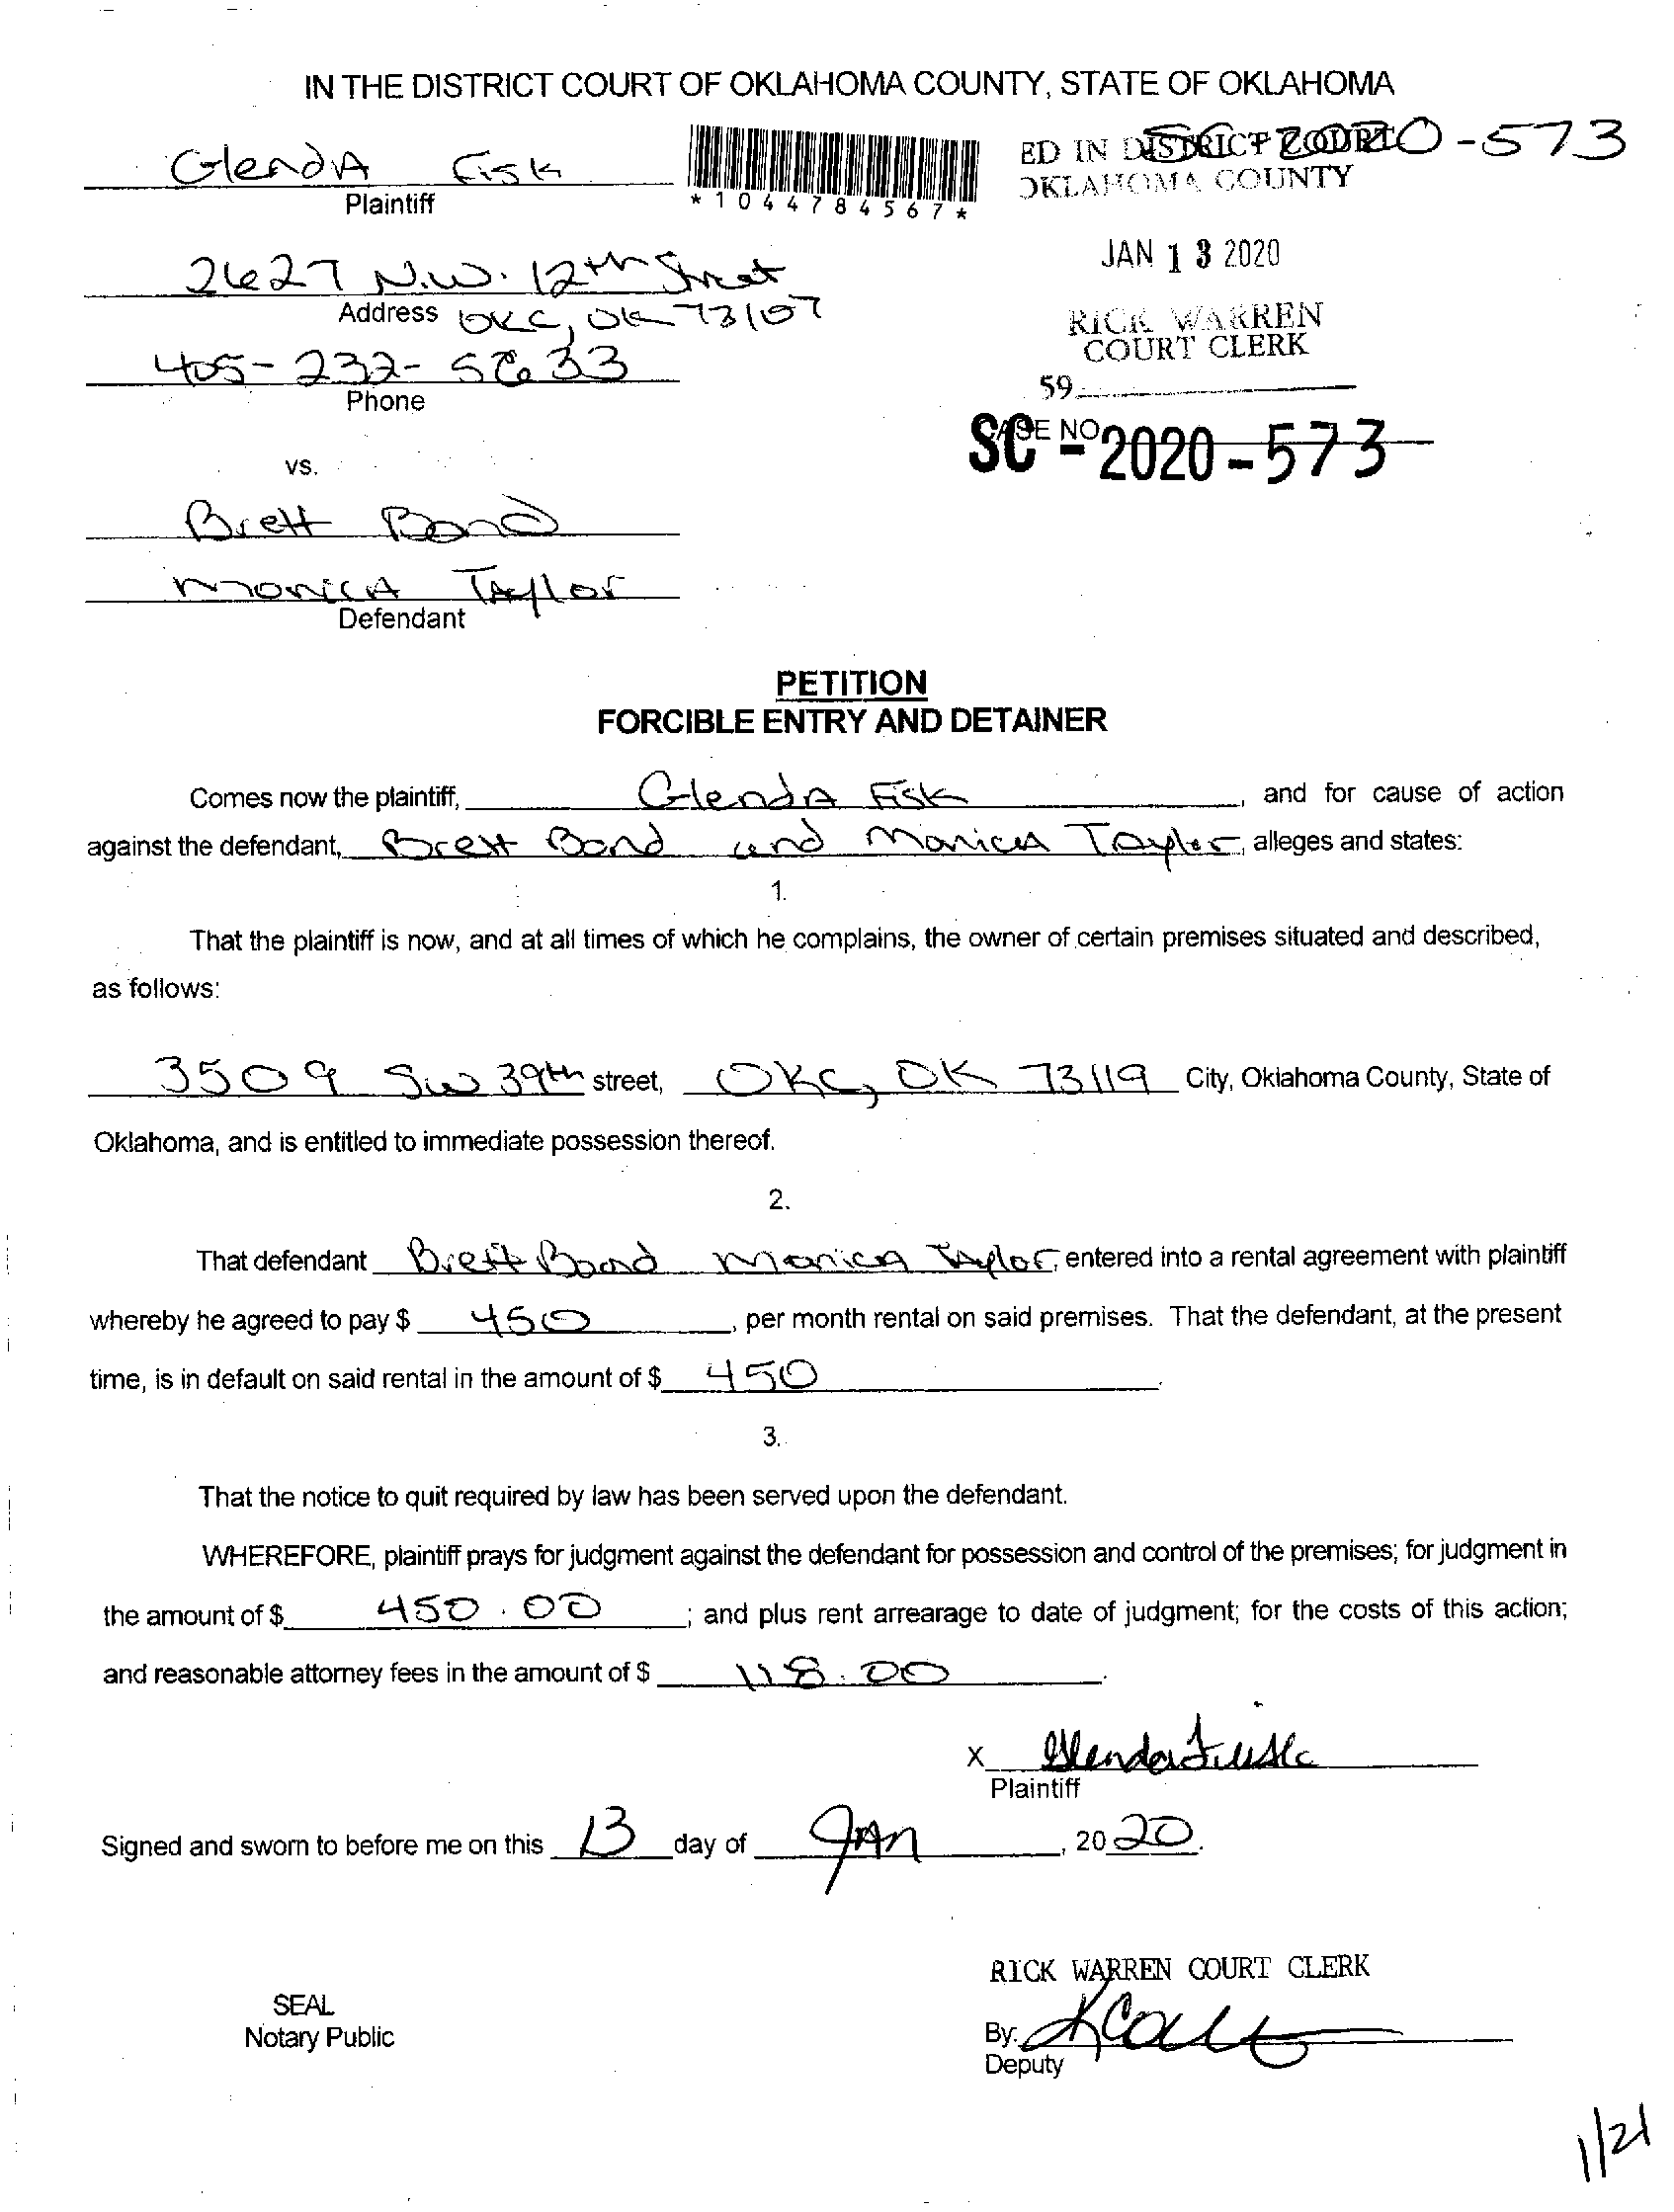 IN THE DISTRICT COURT OF OKLAHOMA COUNTY, STATE OF OKLAHOMA
GlendA Fisk
Plaintiff
*1044784567*
ED IN DISTRICT COURT
SC-2020-573
OKLAHOMA COUNTY
JAN 13 2020
RICK WARREN
COURT CLERK
59
2627 N.W. 12th Street
Address OKC, OK 73107
405-232-5633
Phone
CASE NO.
SC-2020-573
vs.
Brett Bond
MonicA Taylor
Defendant
PETITION
FORCIBLE ENTRY AND DETAINER
Comes now the plaintiff, GlendA Fisk, and for cause of action
against the defendant, Brett Bond and Monica Taylor, alleges and states:
1.
That the plaintiff is now, and at all times of which he complains, the owner of certain premises situated and described,
as follows:
3509 SW 39th street, OKC, OK 73119 City, Oklahoma County, State of
Oklahoma, and is entitled to immediate possession thereof.
2.
That defendant Brett Bond Monica Taylor, entered into a rental agreement with plaintiff
whereby he agreed to pay $ 450, per month rental on said premises. That the defendant, at the present
time, is in default on said rental in the amount of $ 450.
3.
That the notice to quit required by law has been served upon the defendant.
WHEREFORE, plaintiff prays for judgment against the defendant for possession and control of the premises; for judgment in
the amount of $ 450.00; and plus rent arrearage to date of judgment; for the costs of this action;
and reasonable attorney fees in the amount of $ 118.00.
X Glenda Fisk
Plaintiff
Signed and sworn to before me on this 13 day of JAn, 2020.
RICK WARREN COURT CLERK
SEAL
Notary Public
By:
Deputy
1/21